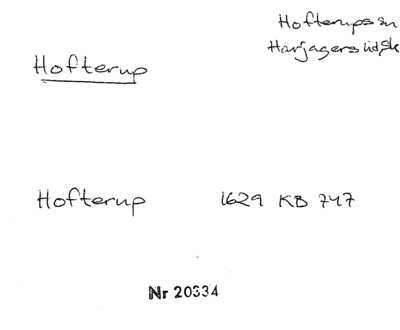 Hofterups sn
Harjagers hd Sk
Hofterup
Hofterup 1629 KB 747
Nr 20334